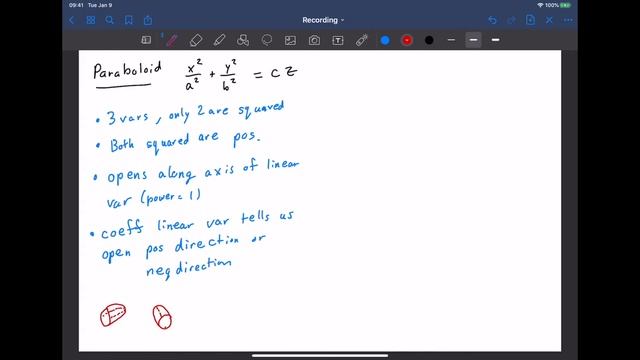 09:41 Tue Jan 9
100%
Recording
Paraboloid x²/a² + y²/b² = cz
• 3 vars, only 2 are squared
• Both squared are pos.
• opens along axis of linear
var (power=1)
• coeff linear var tells us
open pos direction or
neg direction